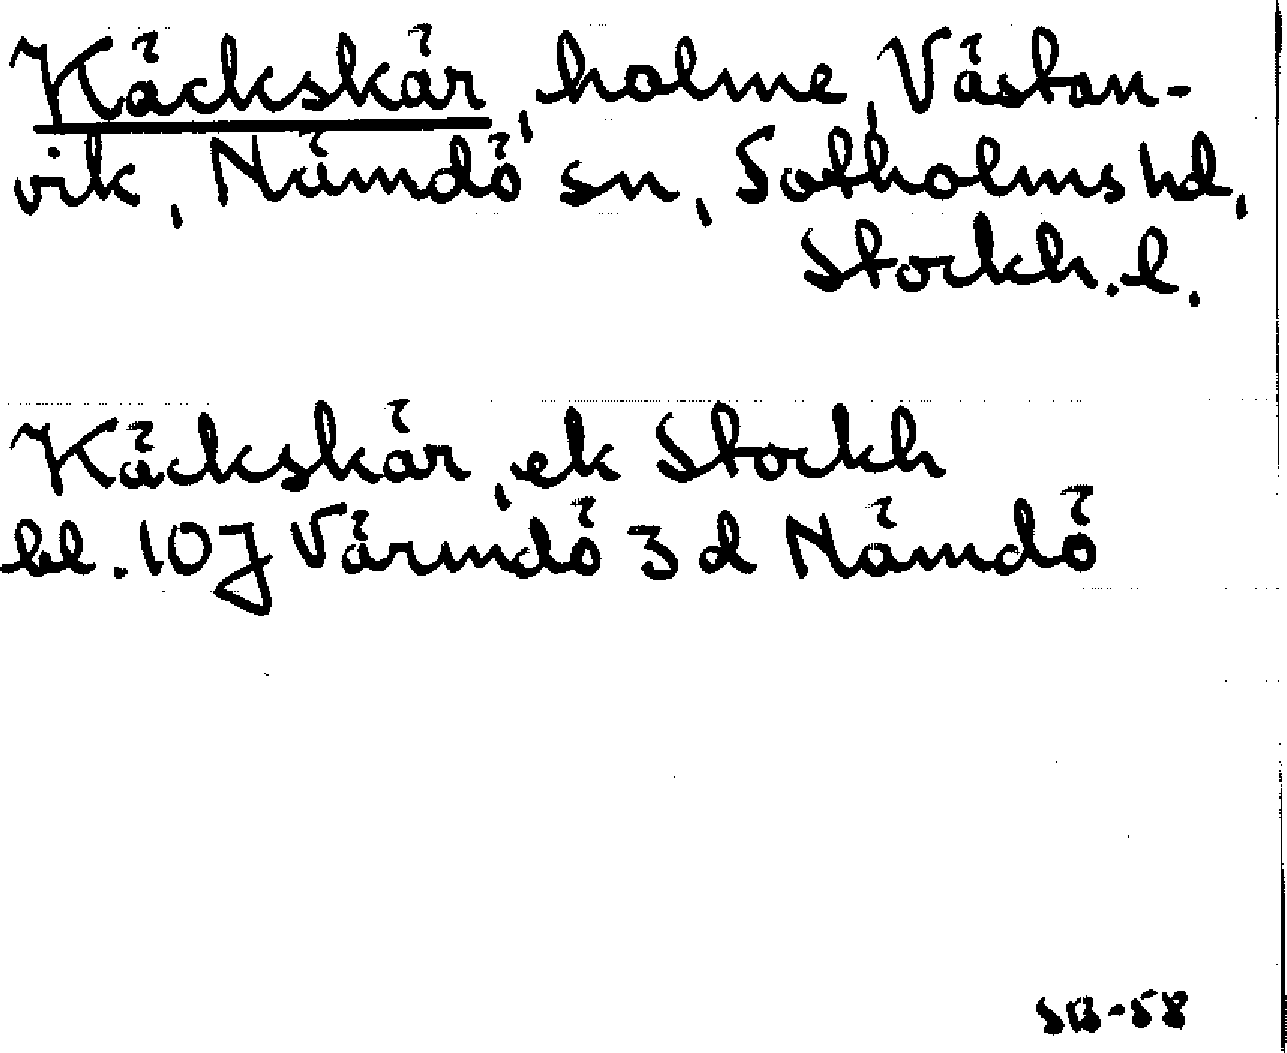 Käckskär, holme, Västan-
vik, Nämdö sn, Sotholms hd,
Stockh. l.
Käckskär, ek Stockh
bl. 10J Värmdö 3d Nämdö
SB-58